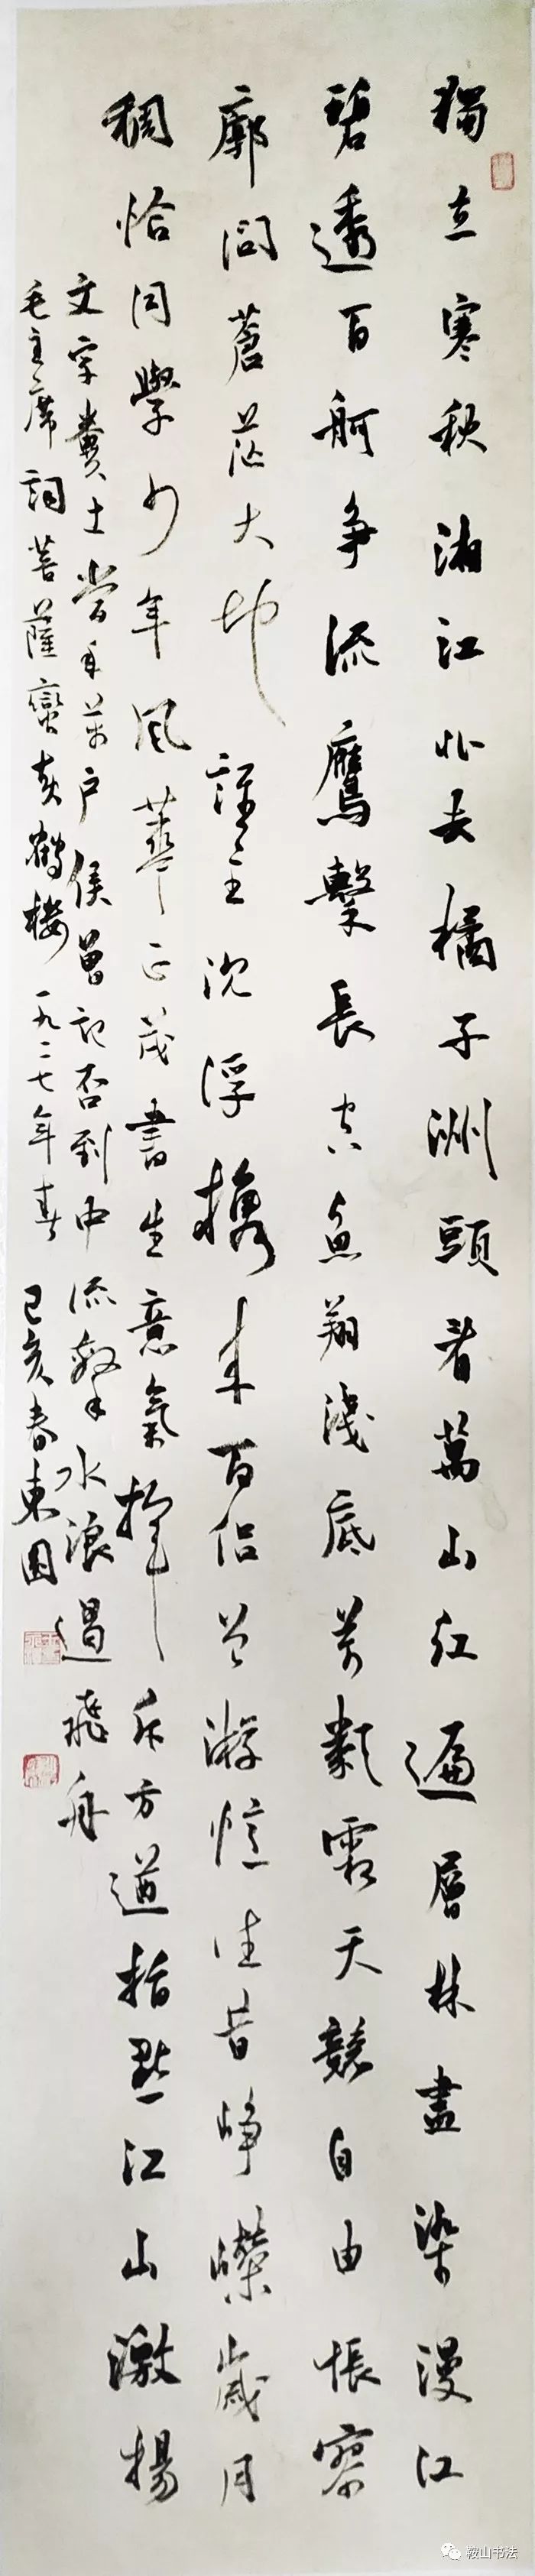 獨立寒秋湘江北去橘子洲頭看萬山紅遍層林盡染漫江
碧透百舸争流鷹擊長空魚翔淺底萬類霜天競自由悵寥
廓問蒼茫大地誰主沈浮攜來百侣曾游憶往昔崢嶸歲月
稠恰同學少年風華正茂書生意氣揮斥方遒指點江山激揚
文字糞土當年萬户侯曾記否到中流擊水浪遏飛舟
毛主席詞菩薩蠻黄鶴樓一九二七年春 己亥春東園
鞍山书法